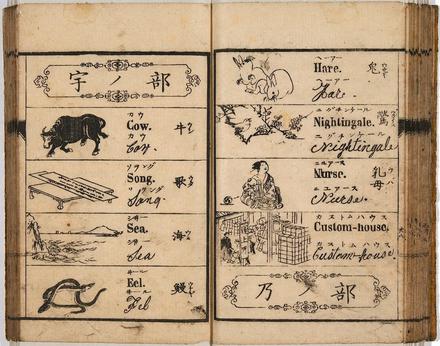 宇ノ部
カウ
Cow.
牛
カウ
Cow.
ソング
Song.
歌
ソング
Song.
シー
Sea.
海
シー
Sea
イール
Eel.
鰻
イール
Eel
ヘーアー
Hare.
兎
ヘーアー
Hare.
ニグチンケール
Nightingale.
鶯
ニグチンケール
Nightingale
ニユアース
Nurse.
乳母
ニユアース
Nurse.
カストムハウス
Custom-house.
カストムハウス
Custom-house.
乃部